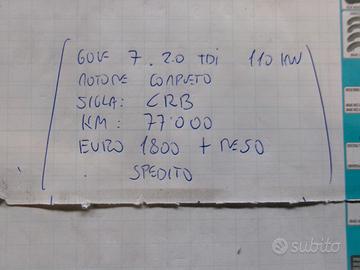 GOLF 7 . 2.0 TDI 110 KW
MOTORE COMPLETO
SIGLA: CRB
KM: 77'000
EURO 1800 + RESO
. SPEDITO
subito